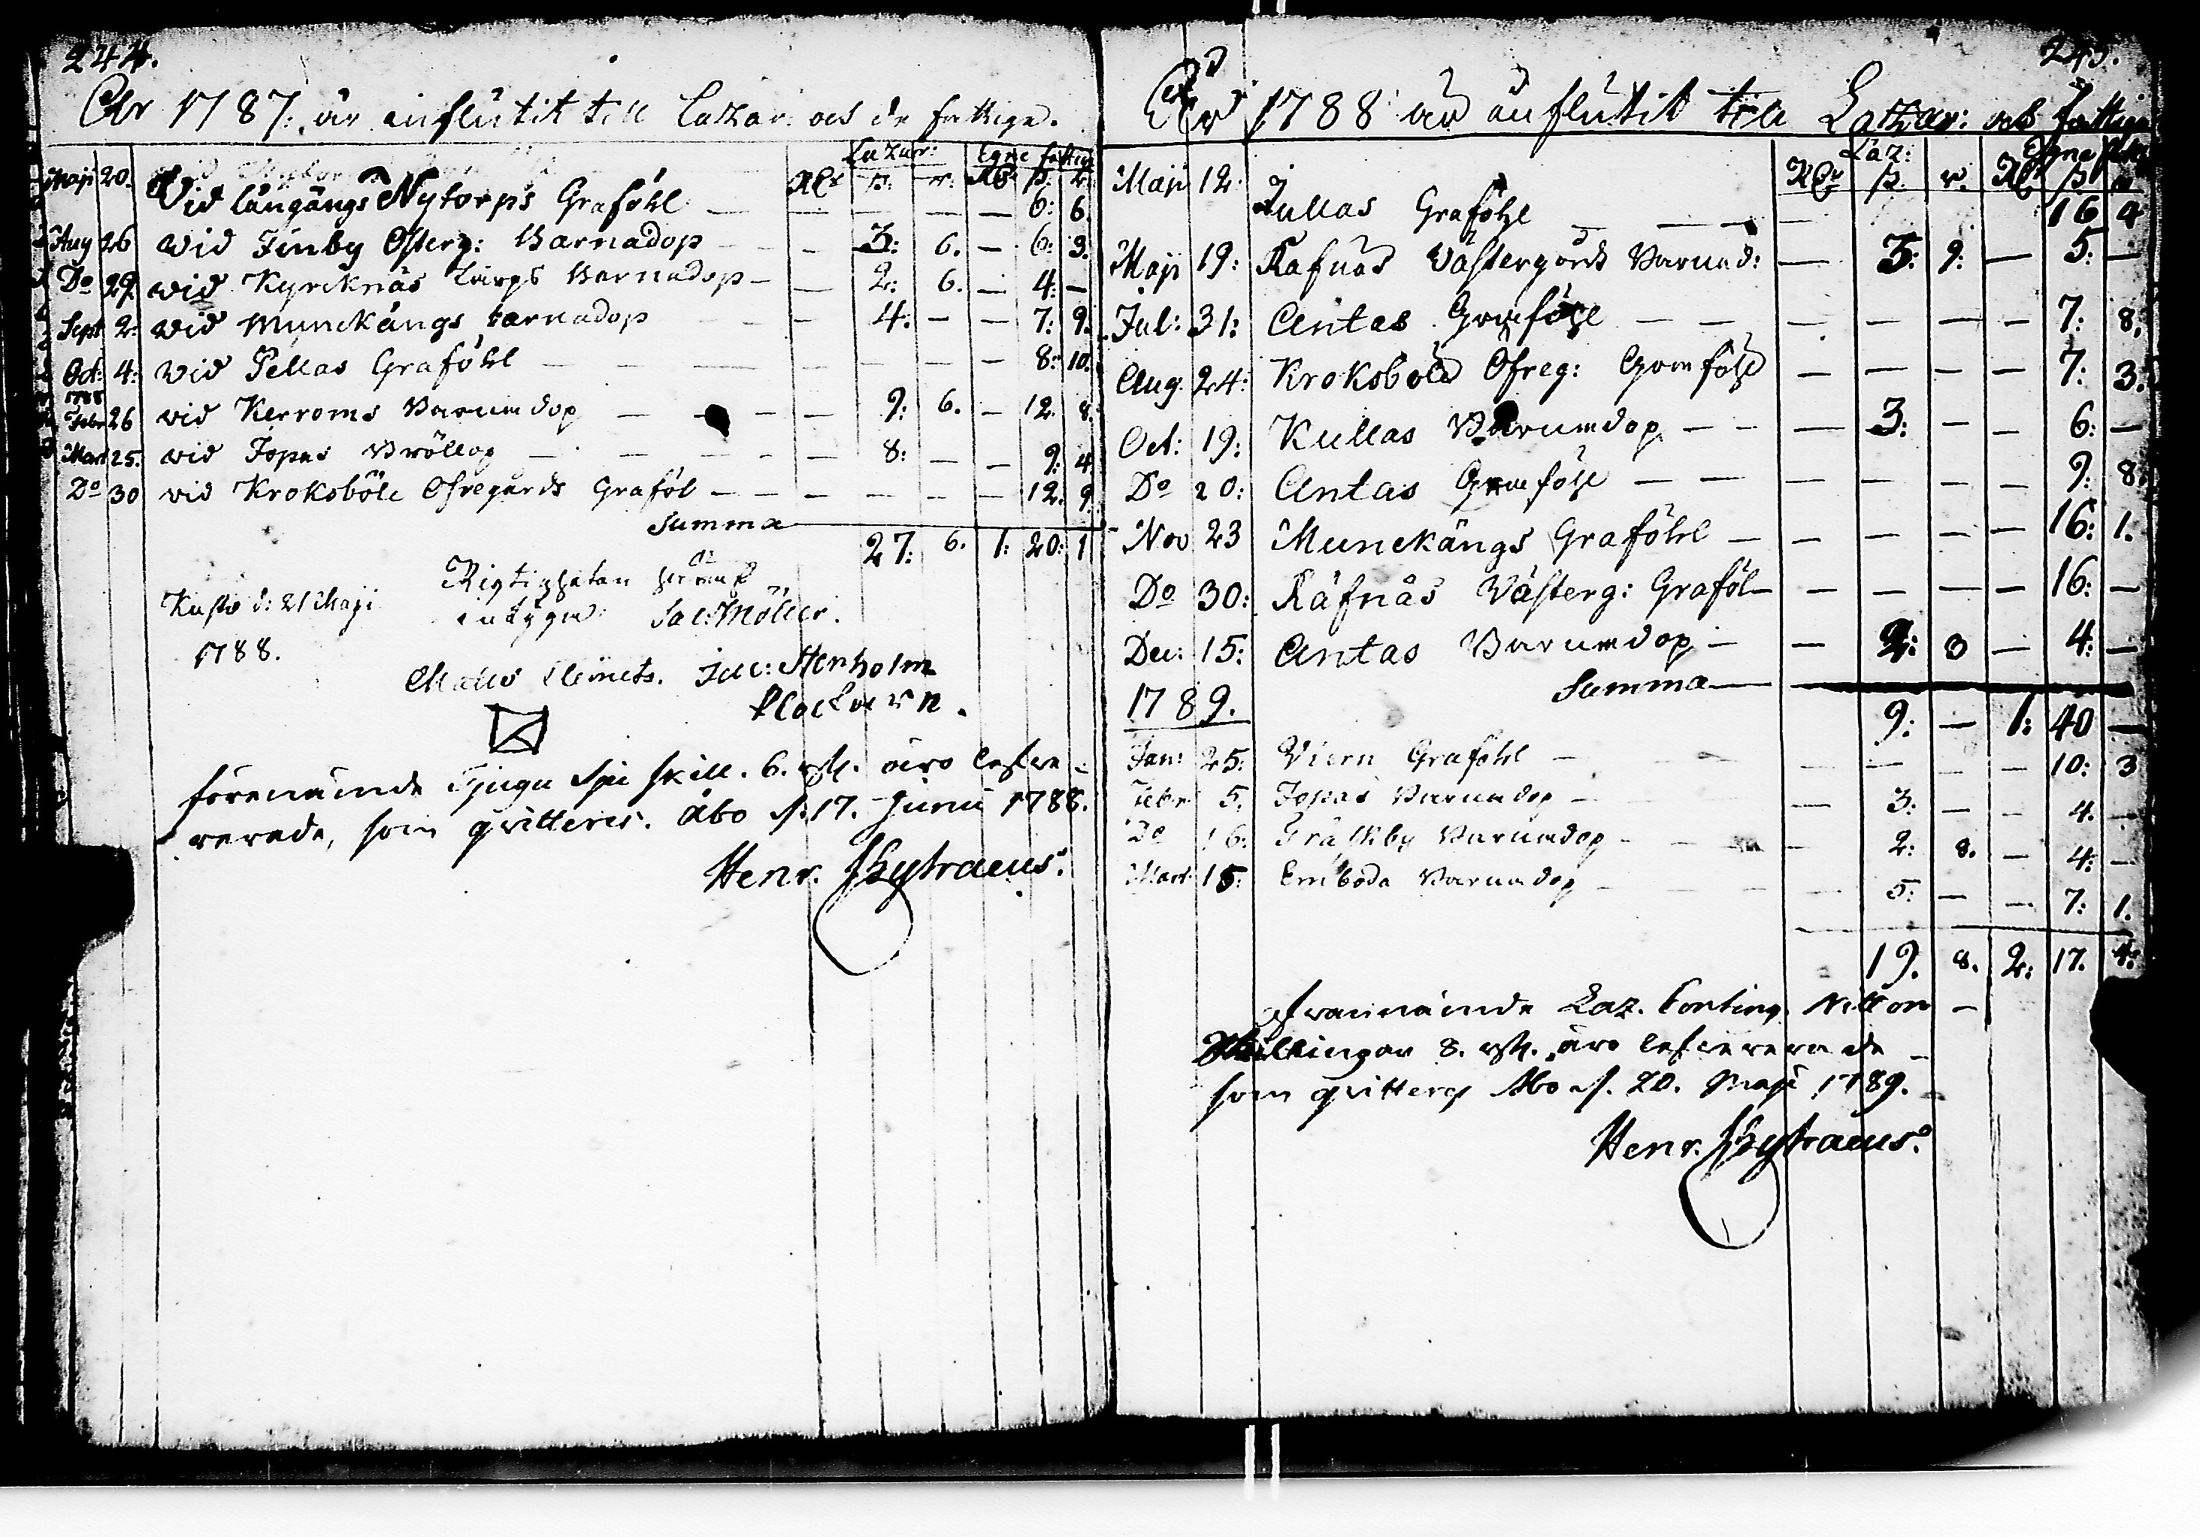 244.
Åhr 1787: är influtit till Lazar: och de fattige.
Lazar: Egne fattig
Rdr ß: r. Rd ß: r.
Maji 20. Wid Långängs Nytorps Graföhl — — — — 6: 6.
Aug 26 wid Finby Österg: Barnadop — — 3: 6. — 6: 3.
Do 29. wid Kyrcknäs Barnadop — — 2: 6. — 4: —
Sept 2: wid Munckängs barnadop — — 4: — — 7: 9.
Oct: 4: wid Pellas Graföhl — — — — 8: 10.
1788
Febr 26 wid Kerroms Barnadop — — 9: 6. — 12. 8.
Mart 25. wid Jopas Bröllop — — 8: — — 9: 4
Do 30 wid Krokoböle Öfregårds Graföl — — — — — 12. 9.
Summa 27: 6. 1: 20: 1
Rigtigheten häraf
Kusto d: 21 Maji intygar Jac: Möller.
1788.
Matts Clemets. Jac: Stenholm
klockaren.
förenämde Tjugu Sju skill. 6. rst. äro lefve-
rerade, som qvitteres. Åbo d. 17. Junii 1788.
Henr. Skytraeus.
245.
Åhr 1788 är influtit till Lazar: och fattiga
Laz: Egne fattig
Rdr ß. r. Rd ß r
Maji 12. Jullas Graföhl — — — 16 4
Maji 19: Räfnäs Västergårds Barnad: — 3: 9: — 5: —
Jul: 31: Antas Graföhl — — — — — — 7: 8:
Aug. 24: Kroksböle Öfreg: Graföhl — — — — 7: 3:
Oct: 19: Kullas Barnadop — — — 3: — — 6: —
Do 20: Antas Graföhl — — — — — — 9: 8:
Nov 23 Munckängs Graföhl — — — — — 16: 1.
Do 30: Räfnäs Västerg: Graföl — — — — — 16: —
Dec: 15: Antas Barnadop — — 2: 3 — 4: —
1789. Summa — 9: — 1: 40 —
Jan: 25: Viern Graföhl — — — — 10: 3
Febr 5. Jopas Barnadop — — 3: — — 4. —
Do 16: Gräskby Barnadop — — 2: 8. — 4: —
Mart: 15: Emboda Barnadop — — 5: — — 7: 1.
19. 8. 2: 17. 4:
ofvannämde Laz. Conting. Nitton —
Skillingar 8. rst. äro lefvererade —
som qvitteres Åbo d. 20. Maji 1789. —
Henr. Skytraeus.